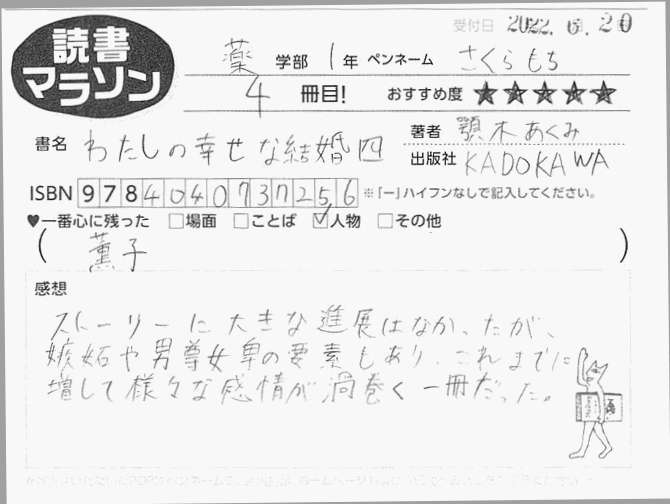 読書
マラソン
受付日 2022. 6. 20
薬 学部 1 年 ペンネーム さくらもち
4 冊目! おすすめ度 ★★★★★
書名 わたしの幸せな結婚 四
著者 顎木あくみ
出版社 KADOKAWA
ISBN 9784040737256 ※「-」ハイフンなしで記入してください。
♥一番心に残った □場面 □ことば ☑人物 □その他
( 薫子 )
感想
ストーリーに大きな進展はなかったが、
嫉妬や男尊女卑の要素もあり、これまでに
増して様々な感情が渦巻く一冊だった。